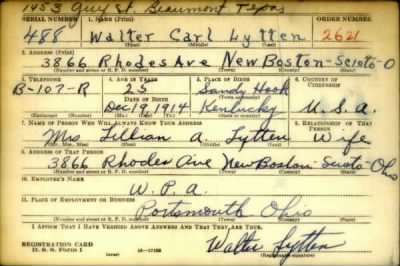 1453 Gulf St. Beaumont Texas
SERIAL NUMBER 1. NAME (Print) ORDER NUMBER
488 Walter Carl Lytten 2621
(First) (Middle) (Last)
2. ADDRESS (Print)
3866 Rhodes Ave New Boston-Scioto-O
(Number and street or R. F. D. number) (Town) (County) (State)
3. TELEPHONE 4. AGE IN YEARS 5. PLACE OF BIRTH 6. COUNTRY OF CITIZENSHIP
B-107-R 25 Sandy Hook
DATE OF BIRTH (Town or county)
Dec 19 1914 Kentucky U.S.A.
(Exchange) (Number) (Mo.) (Day) (Yr.) (State or country)
7. NAME OF PERSON WHO WILL ALWAYS KNOW YOUR ADDRESS 8. RELATIONSHIP OF THAT PERSON
Mrs. Lillian A. Lytten Wife
(Mr., Mrs., Miss) (First) (Middle) (Last)
9. ADDRESS OF THAT PERSON
3866 Rhodes Ave New Boston-Scioto-Ohio
(Number and street or R. F. D. number) (Town) (County) (State)
10. EMPLOYER'S NAME
W.P.A.
11. PLACE OF EMPLOYMENT OR BUSINESS
Portsmouth Ohio
(Number and street or R. F. D. number) (Town) (County) (State)
I AFFIRM THAT I HAVE VERIFIED ABOVE ANSWERS AND THAT THEY ARE TRUE.
REGISTRATION CARD
D. S. S. Form 1 16-17105 Walter Lytten